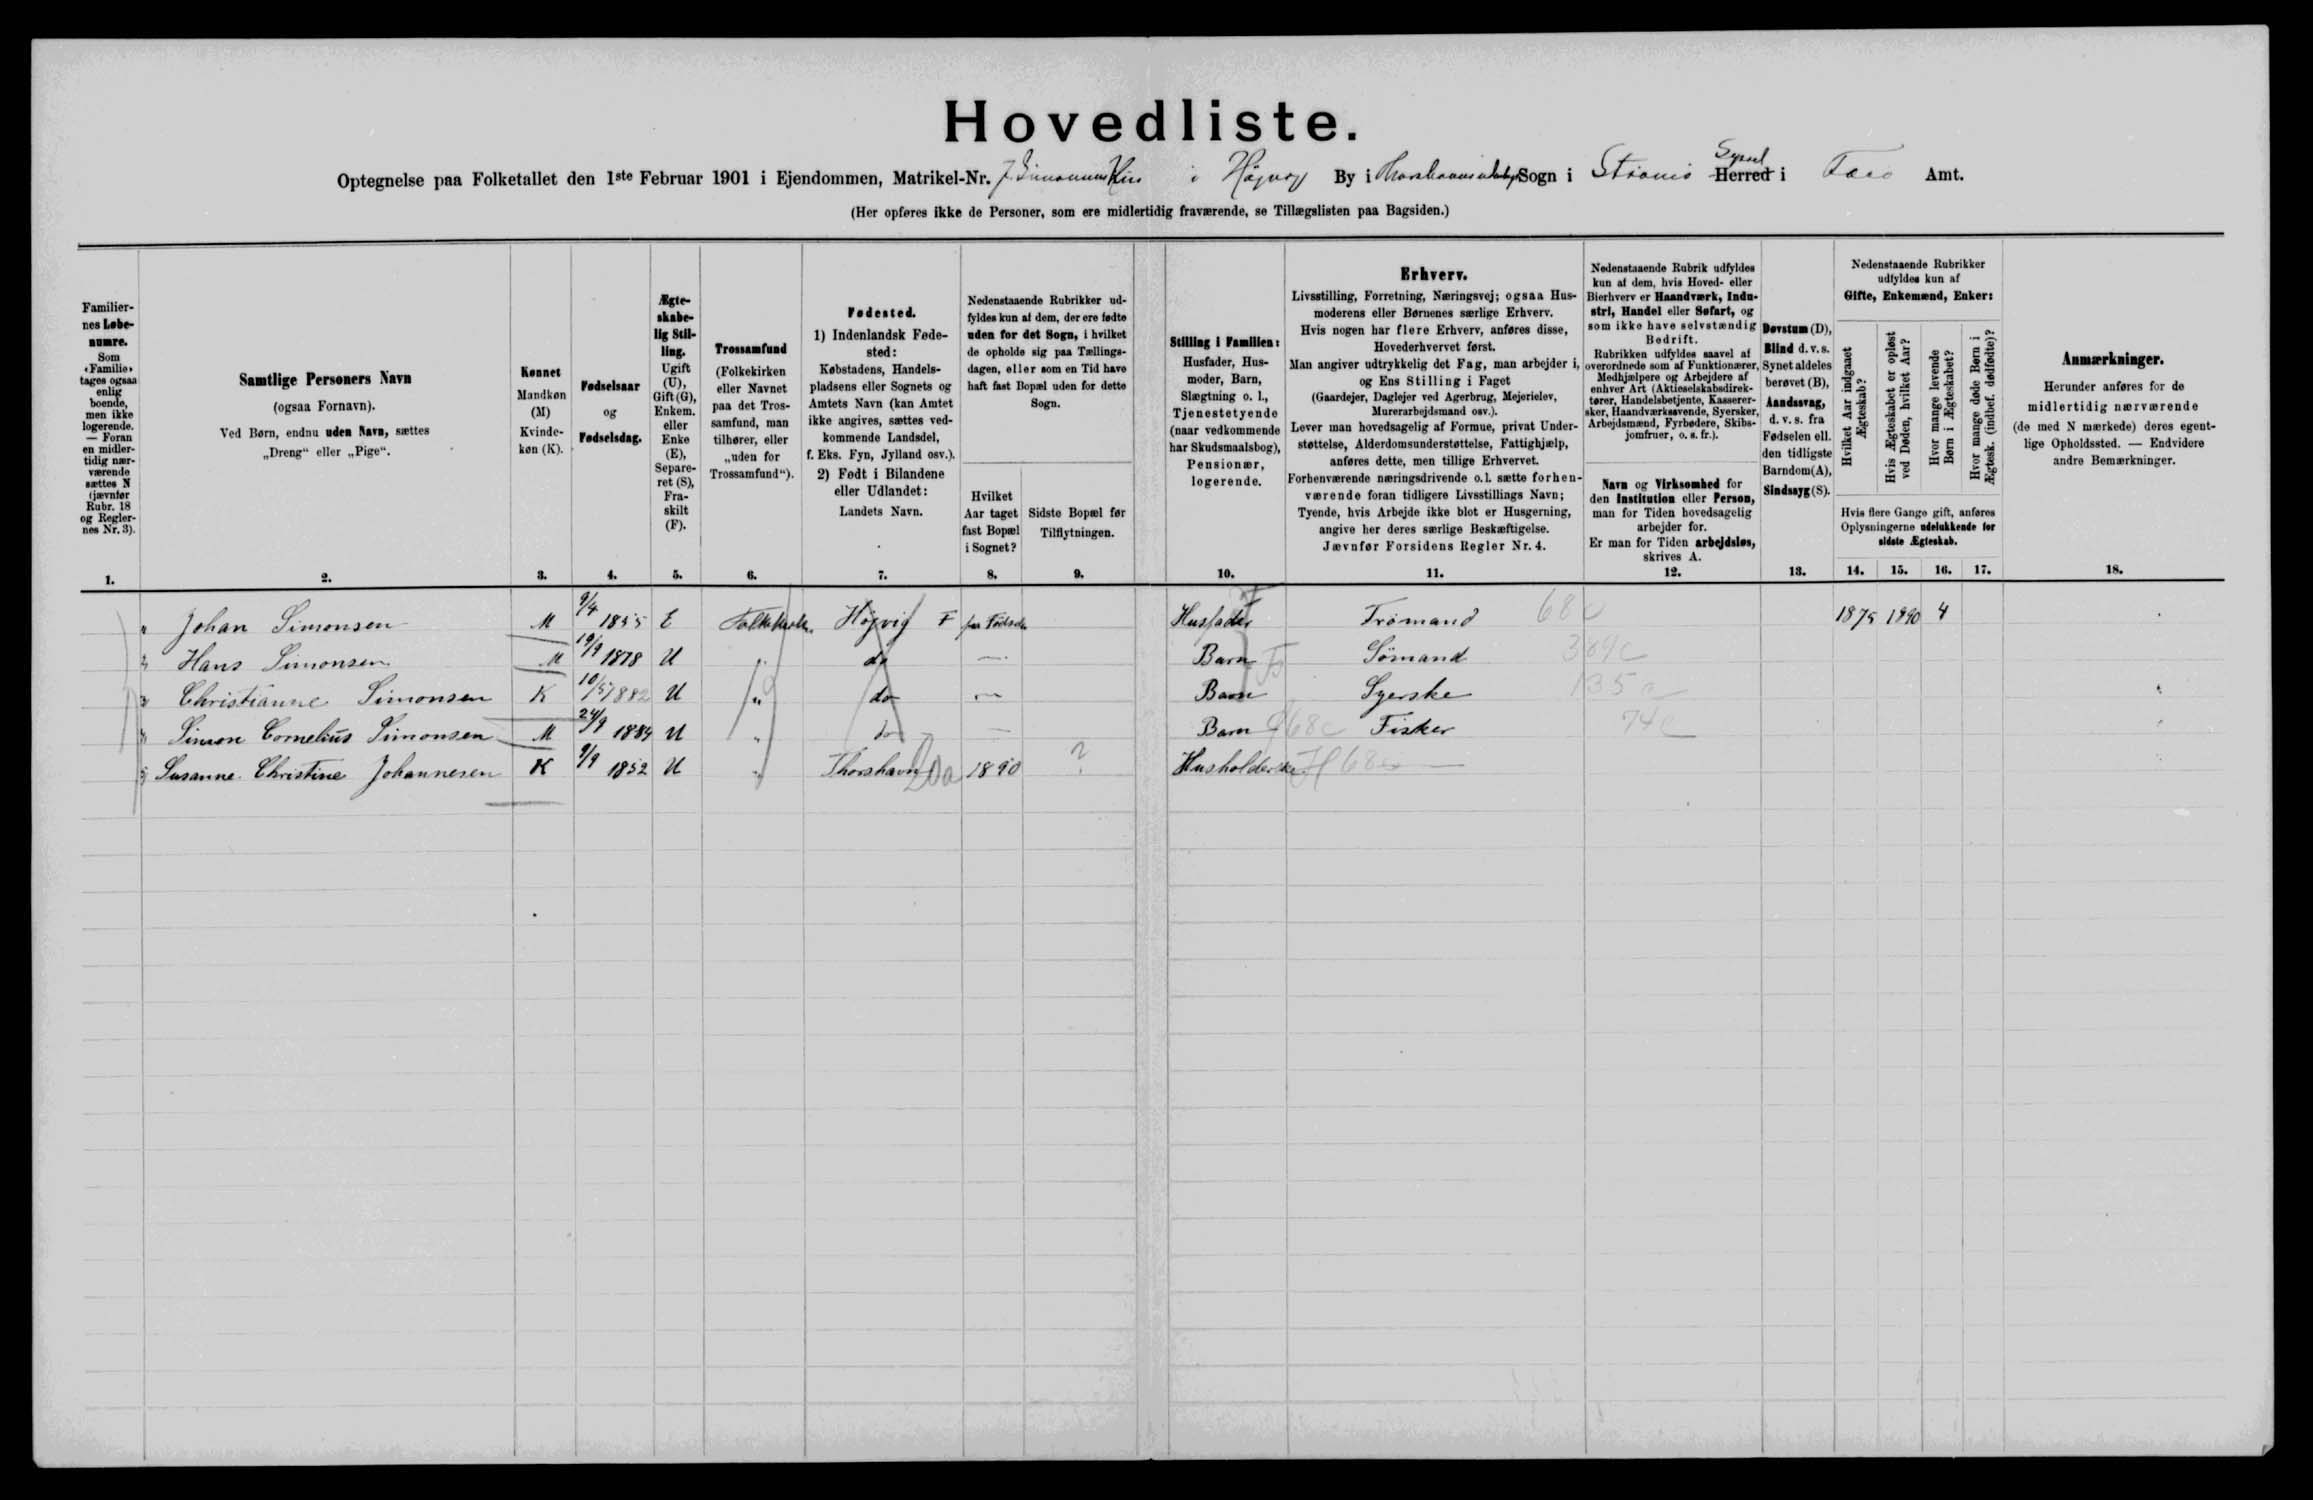 Hovedliste.
Optegnelse paa Folketallet den 1ste Februar 1901 i Ejendommen, Matrikel-Nr. J. Simonsens Hus i Højvig By i Thorshavns Sogn i Strømø Syssel Herred i Færø Amt.
(Her opføres ikke de Personer, som ere midlertidig fraværende, se Tillægslisten paa Bagsiden.)
Familiernes Løbenumre.
Som «Familie» tages ogsaa enlig boende, men ikke logerende. — Foran en midlertidig nærværende sættes N (jævnfør Rubr. 18 og Reglernes Nr. 3).
1.
Samtlige Personers Navn
(ogsaa Fornavn).
Ved Børn, endnu uden Navn, sættes
„Dreng“ eller „Pige“.
2.
Kønnet
Mandkøn
(M)
Kvinde-
køn (K).
3.
Fødselsaar
og
Fødselsdag.
4.
Ægte-
skabe-
lig Stil-
ling.
Ugift
(U),
Gift (G),
Enkem.
eller
Enke
(E),
Separe-
ret (S),
Fra-
skilt
(F).
5.
Trossamfund
(Folkekirken
eller Navnet
paa det Tros-
samfund, man
tilhører, eller
„uden for
Trossamfund“).
6.
Fødested.
1) Indenlandsk Føde-
sted:
Købstadens, Handels-
pladsens eller Sognets og
Amtets Navn (kan Amtet
ikke angives, sættes ved-
kommende Landsdel,
f. Eks. Fyn, Jylland osv.).
2) Født i Bilandene
eller Udlandet:
Landets Navn.
7.
Nedenstaaende Rubrikker ud-
fyldes kun af dem, der ere fødte
uden for det Sogn, i hvilket
de opholde sig paa Tællings-
dagen, eller som en Tid have
haft fast Bopæl uden for dette
Sogn.
Hvilket
Aar taget
fast Bopæl
i Sognet?
8.
Sidste Bopæl før
Tilflytningen.
9.
Stilling i Familien:
Husfader, Hus-
moder, Barn,
Slægtning o. l.,
Tjenestetyende
(naar vedkommende
har Skudsmaalsbog),
Pensionær,
logerende.
10.
Erhverv.
Livsstilling, Forretning, Næringsvej; ogsaa Hus-
moderens eller Børnenes særlige Erhverv.
Hvis nogen har flere Erhverv, anføres disse,
Hovederhvervet først.
Man angiver udtrykkelig det Fag, man arbejder i,
og Ens Stilling i Faget
(Gaardejer, Daglejer ved Agerbrug, Mejerielev,
Murerarbejdsmand osv.).
Lever man hovedsagelig af Formue, privat Under-
støttelse, Alderdomsunderstøttelse, Fattighjælp,
anføres dette, men tillige Erhvervet.
Forhenværende næringsdrivende o. l. sætte forhen-
værende foran tidligere Livsstillings Navn;
Tyende, hvis Arbejde ikke blot er Husgerning,
angive her deres særlige Beskæftigelse.
Jævnfør Forsidens Regler Nr. 4.
11.
Nedenstaaende Rubrik udfyldes
kun af dem, hvis Hoved- eller
Bierhverv er Haandværk, Indu-
stri, Handel eller Søfart, og
som ikke have selvstændig
Bedrift.
Rubrikken udfyldes saavel af
overordnede som af Funktionærer,
Medhjælpere og Arbejdere af
enhver Art (Aktieselskabsdirek-
tører, Handelsbetjente, Kasserer-
sker, Haandværkssvende, Syersker,
Arbejdsmænd, Fyrbødere, Skibs-
jomfruer, o. s. fr.).
Navn og Virksomhed for
den Institution eller Person,
man for Tiden hovedsagelig
arbejder for.
Er man for Tiden arbejdsløs,
skrives A.
12.
Døvstum (D),
Blind d. v. s.
Synet aldeles
berøvet (B),
Aandssvag,
d. v. s. fra
Fødselen ell.
den tidligste
Barndom (A),
Sindssyg (S).
13.
Nedenstaaende Rubrikker
udfyldes kun af
Gifte, Enkemænd, Enker:
Hvilket Aar indgaaet
Ægteskab?
Hvis Ægteskabet er opløst
ved Døden, hvilket Aar?
Hvor mange levende
Børn i Ægteskabet?
Hvor mange døde Børn i
Ægtesk. (indbef. dødfødte)?
Hvis flere Gange gift, anføres
Oplysningerne udelukkende for
sidste Ægteskab.
14. 15. 16. 17.
Anmærkninger.
Herunder anføres for de
midlertidig nærværende
(de med N mærkede) deres egent-
lige Opholdssted. — Endvidere
andre Bemærkninger.
18.
" Johan Simonsen M 9/4 1855 E Folkekirken Højvig F fra Fødselen Husfader Trømand 68c 1875 1890 4
" Hans Simonsen M 19/9 1878 U " do — Barn Sømand 364c
" Christianne Simonsen K 10/5 1882 U " do — Barn Syerske 135a
" Simon Cornelius Simonsen M 24/9 1884 U " do — Barn 68c Fisker 74c
" Susanne Christine Johannesen K 9/9 1852 U " Thorshavn 20a 1890 ? Husholderske H 68c